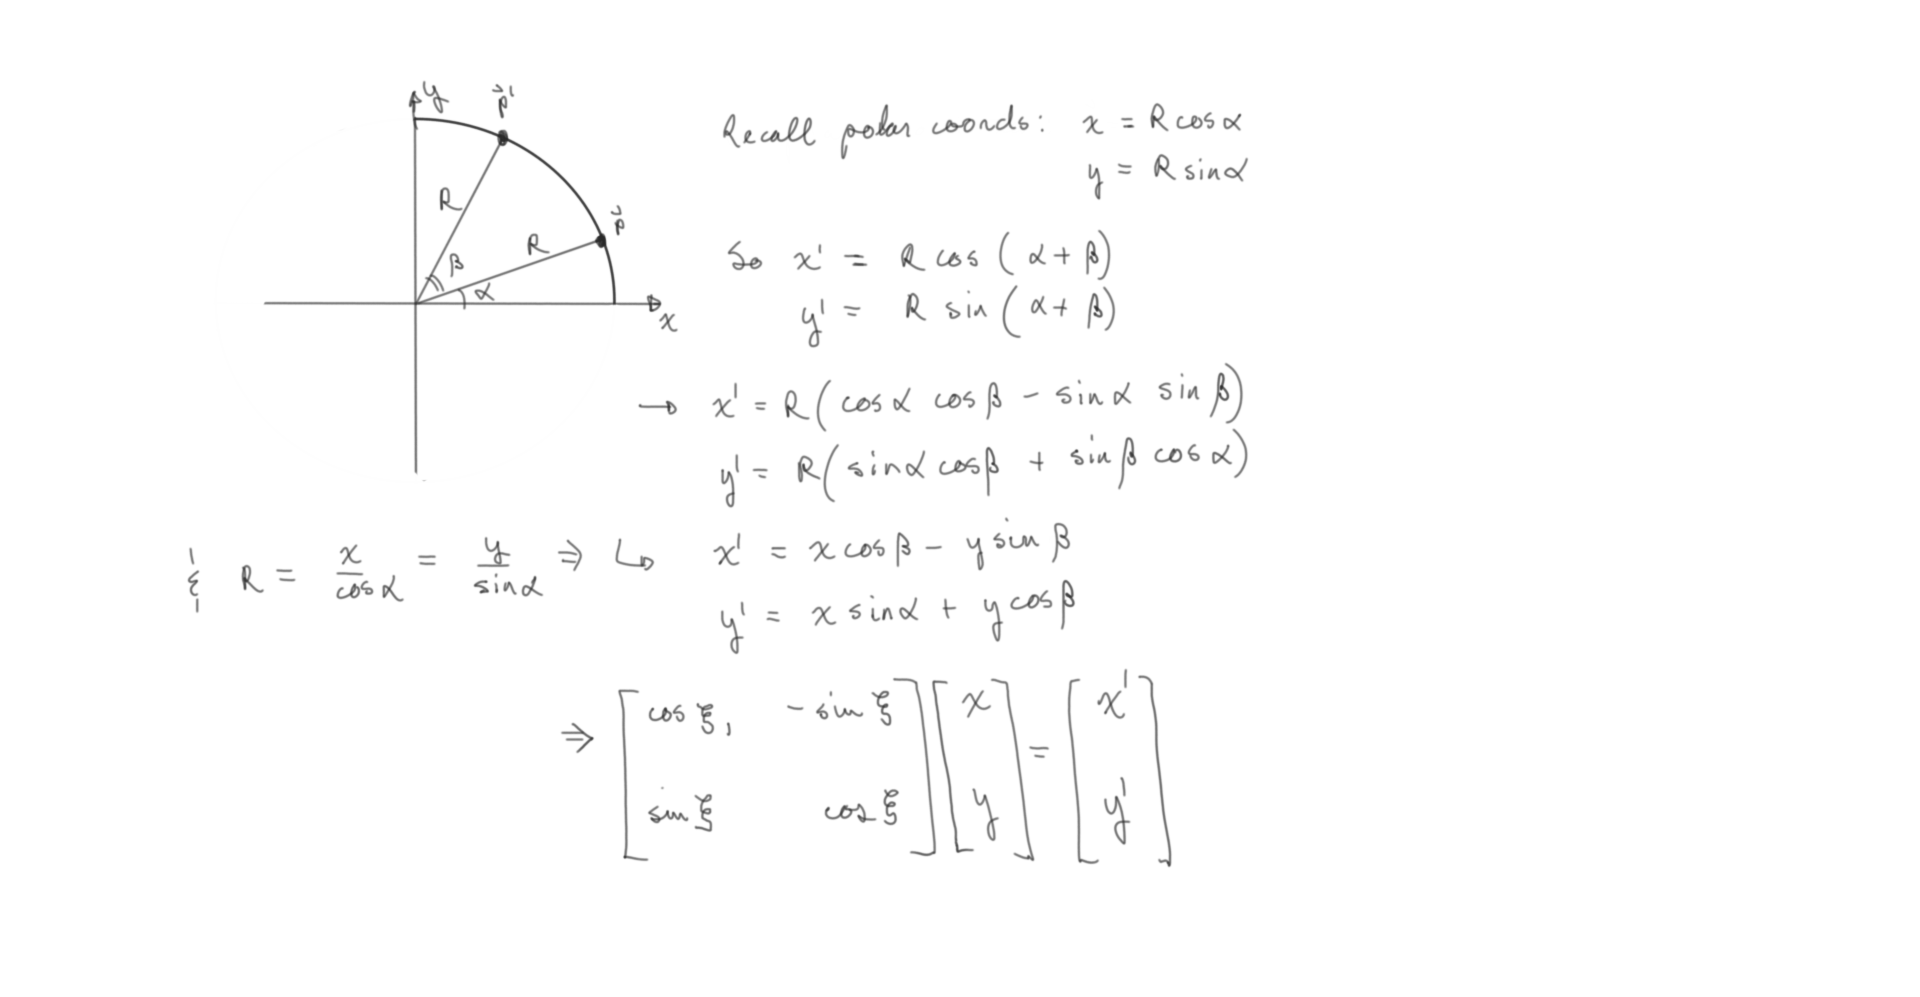 y
p⃗'
R
p⃗
R
β
α
x
Recall polar coords: x = R cos α
y = R sin α
So x' = R cos (α + β)
y' = R sin (α + β)
→ x' = R(cos α cos β - sin α sin β)
y' = R(sin α cos β + sin β cos α)
& R = x/cos α = y/sin α ⇒ ↳ x' = x cos β - y sin β
y' = x sin α + y cos β
⇒ [cos ξ, - sin ξ] [x] = [x']
[sin ξ cos ξ] [y] [y']